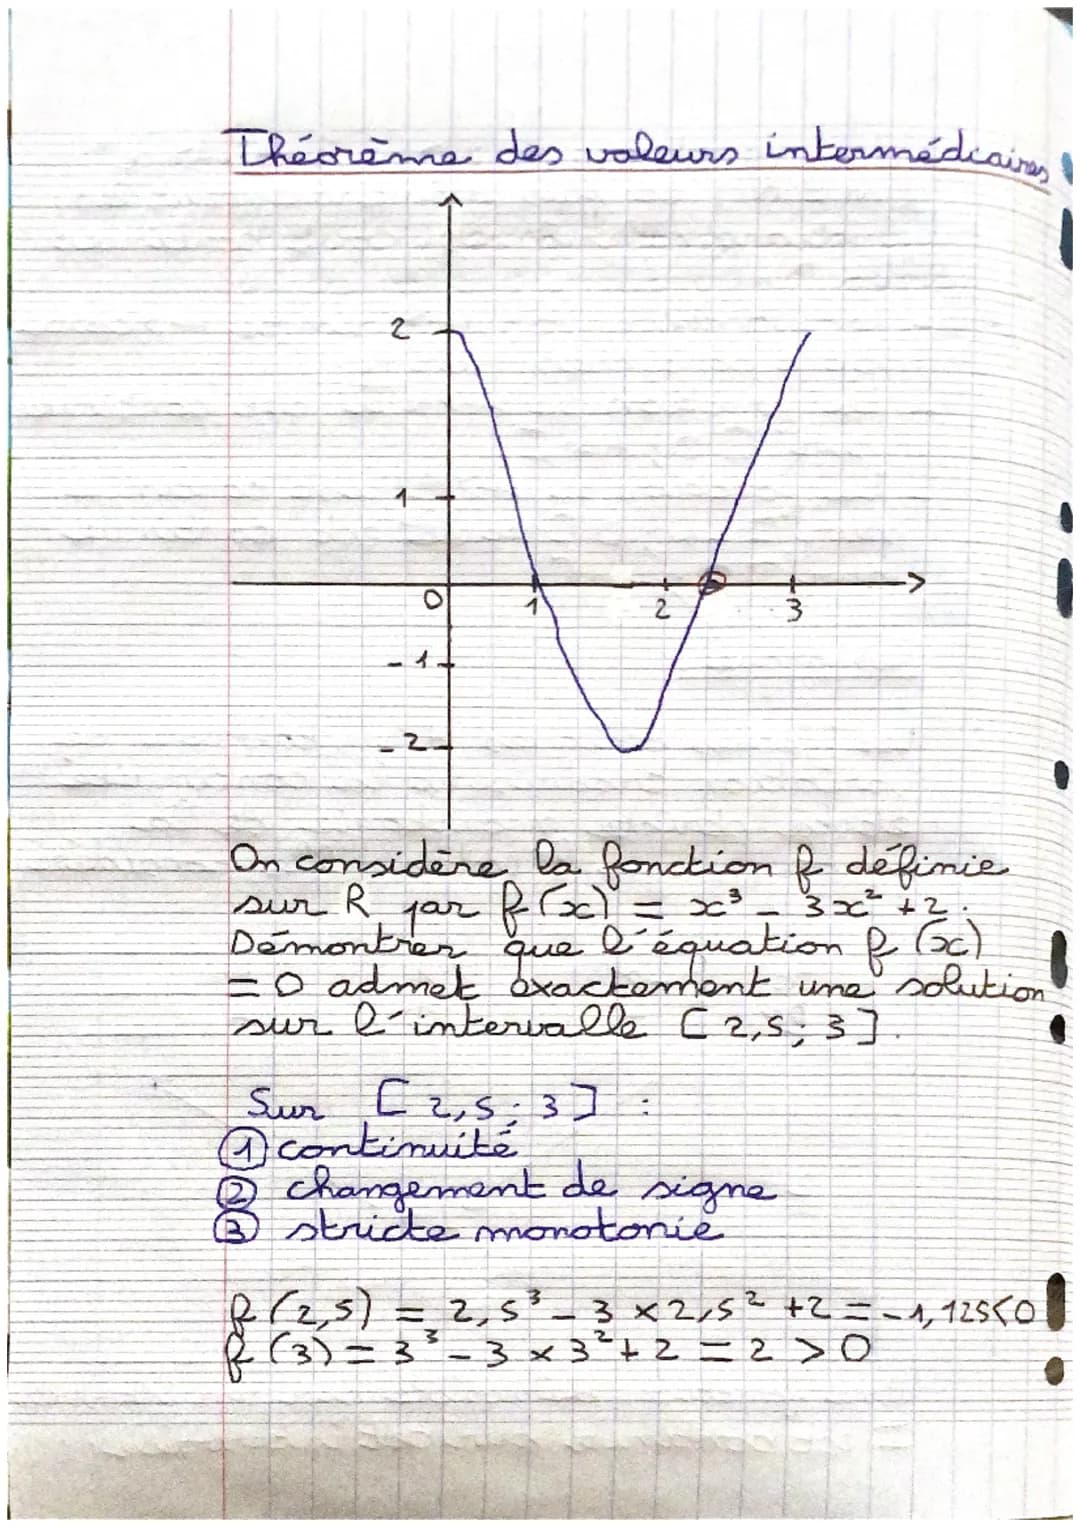 Théorème des valeurs intermédiaires
2
1
0 1 2 3
-1
-2
On considère la fonction f définie
sur R par f(x) = x³ - 3x² + 2.
Démontrer que l'équation f(x)
= 0 admet exactement une solution
sur l'intervalle [2,5; 3].
Sur [2,5; 3] :
① continuité
② changement de signe
③ stricte monotonie
f(2,5) = 2,5³ - 3 × 2,5² + 2 = -1,125 < 0
f(3) = 3³ - 3 × 3² + 2 = 2 > 0